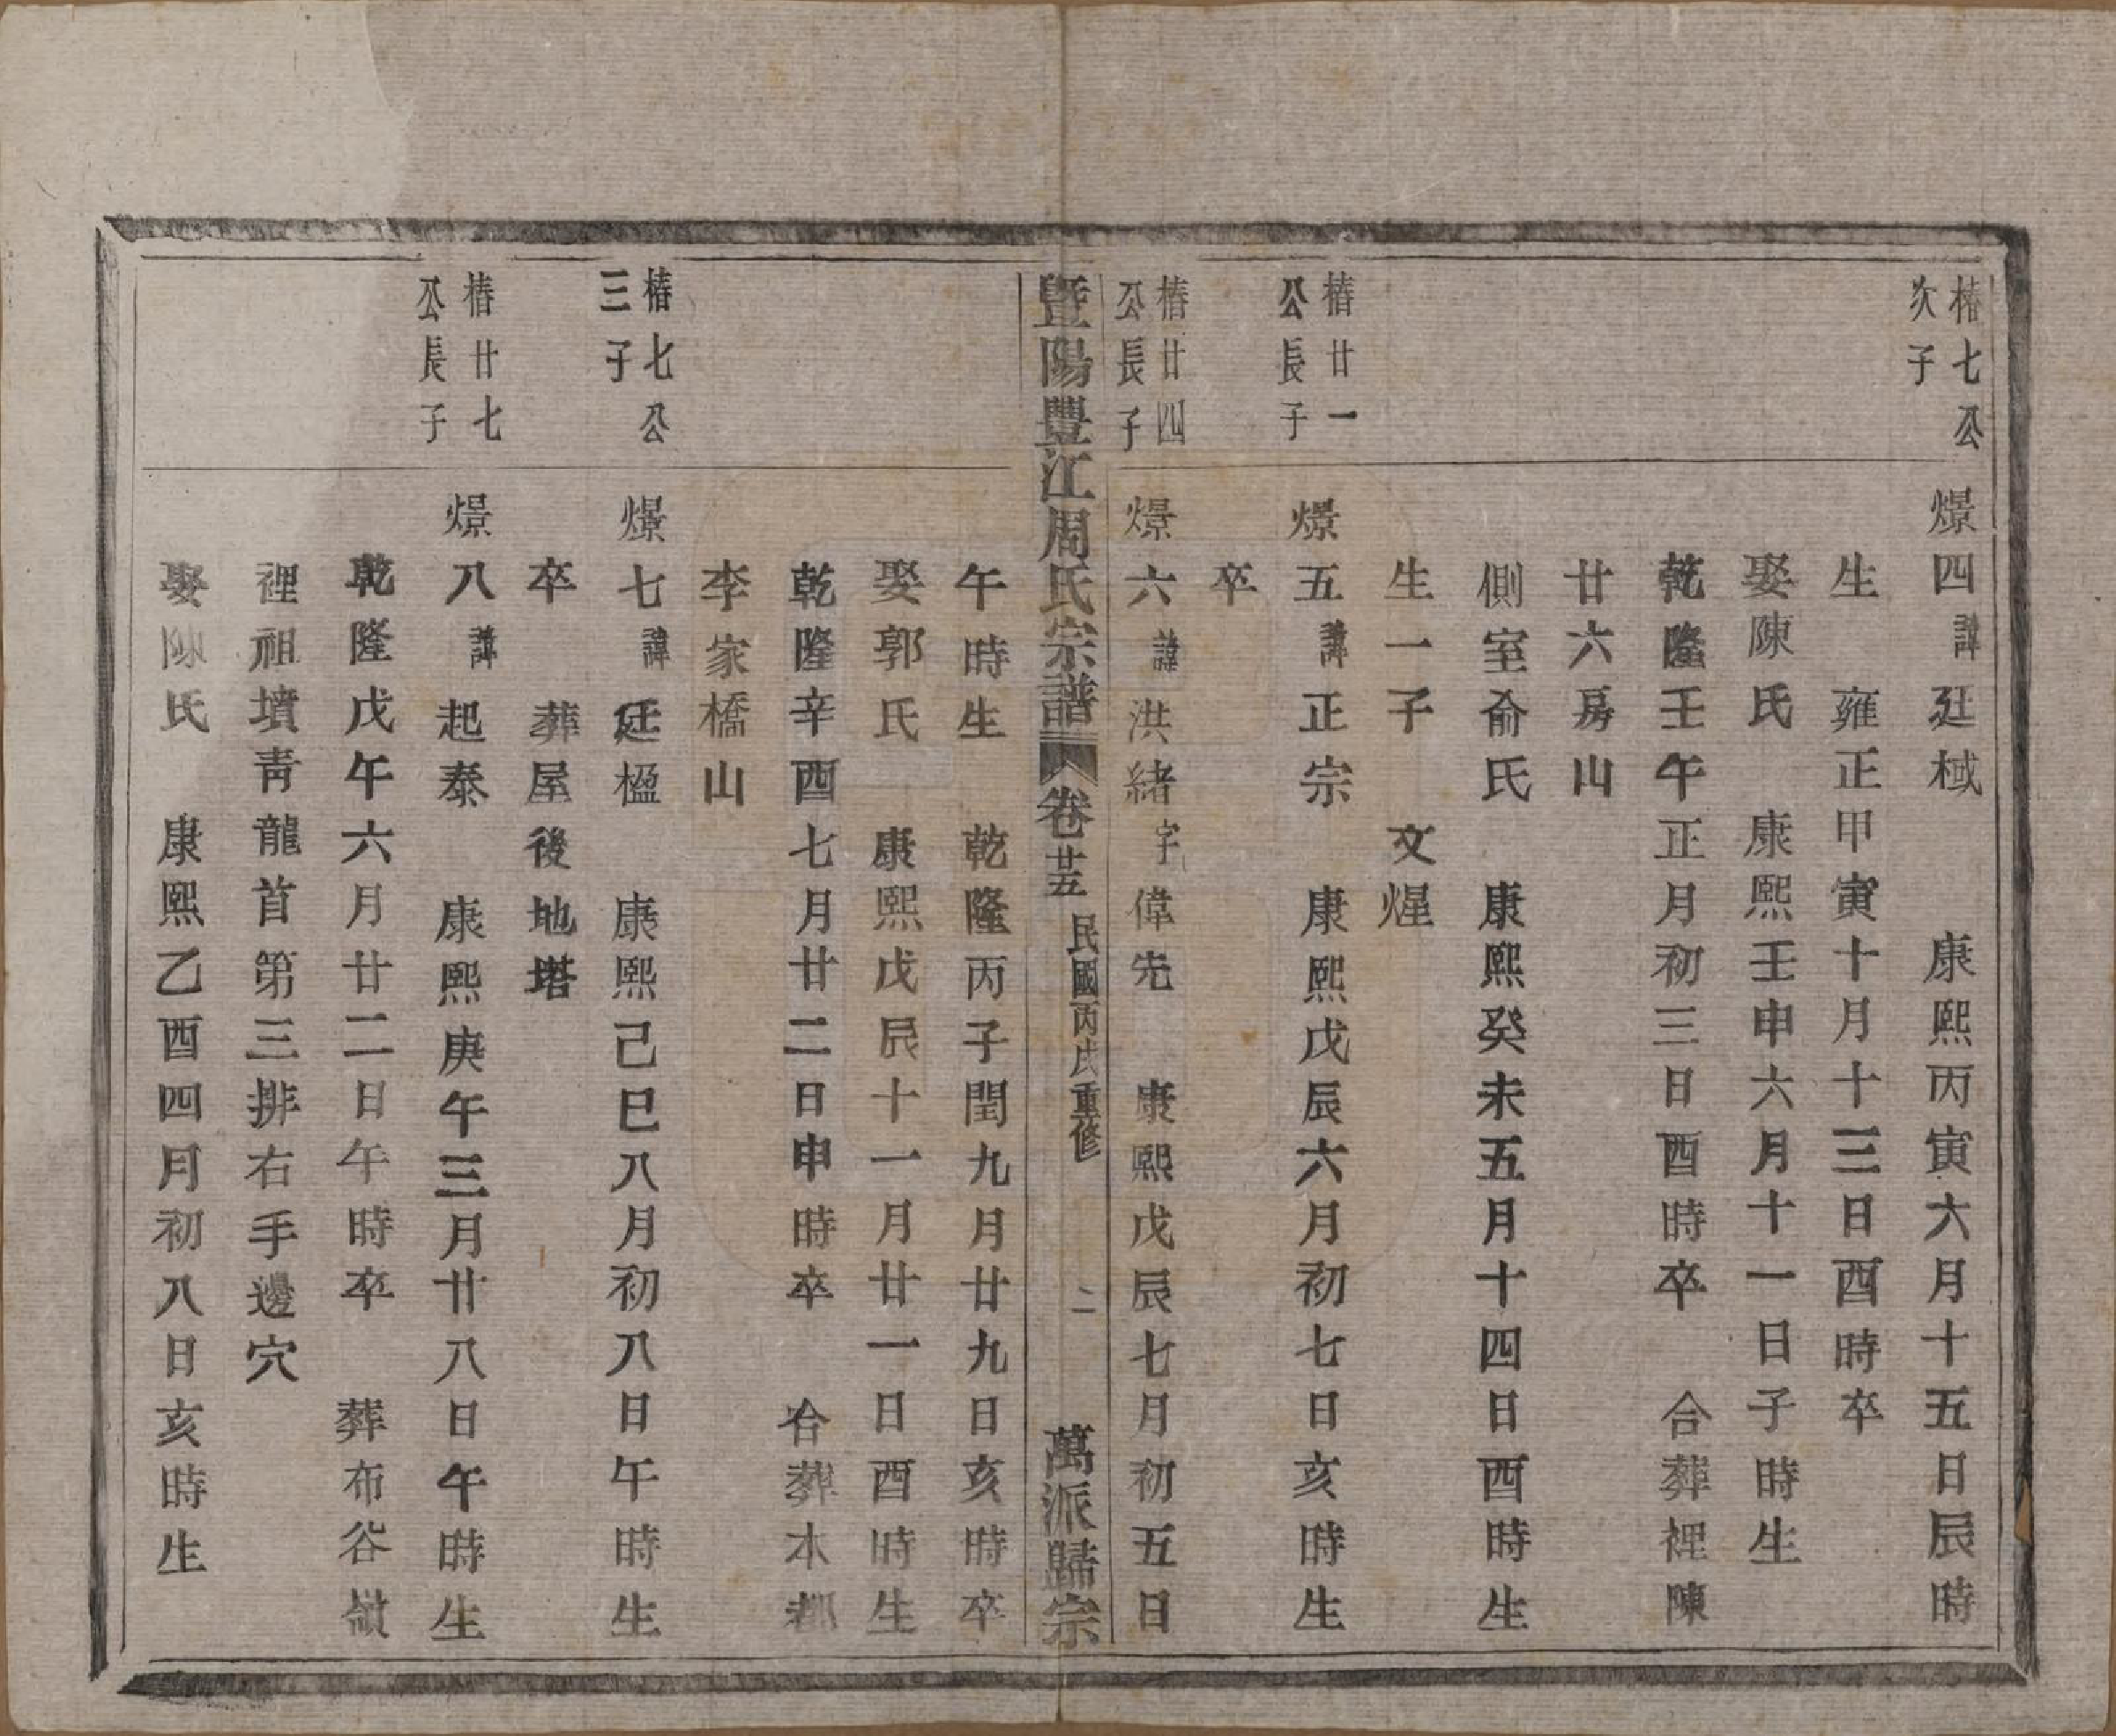 椿七公
次子
燝四諱廷棫　康熙丙寅六月十五日辰時
生　雍正甲寅十月十三日酉時卒
娶陳氏　康熙壬申六月十一日子時生
乾隆壬午正月初三日酉時卒　合葬裡陳
廿六房山
側室俞氏　康熙癸未五月十四日酉時生
生一子　文煋
椿廿一
公長子
燝五諱正宗　康熙戊辰六月初七日亥時生
卒
椿廿四
公長子
燝六諱洪緒字偉先　康熙戊辰七月初五日
暨陽豐江周氏宗譜　卷廿五　民國丙戌重修　二　萬派歸宗
午時生　乾隆丙子閏九月廿九日亥時卒
娶郭氏　康熙戊辰十一月廿一日酉時生
乾隆辛酉七月廿二日申時卒　合葬本都
李家橋山
椿七公
三子
燝七諱廷楹　康熙己巳八月初八日午時生
卒　葬屋後地塔
椿廿七
公長子
燝八諱起泰　康熙庚午三月廿八日午時生
乾隆戊午六月廿二日午時卒　葬布谷嶺
裡祖墳靑龍首第三排右手邊穴
娶陳氏　康熙乙酉四月初八日亥時生